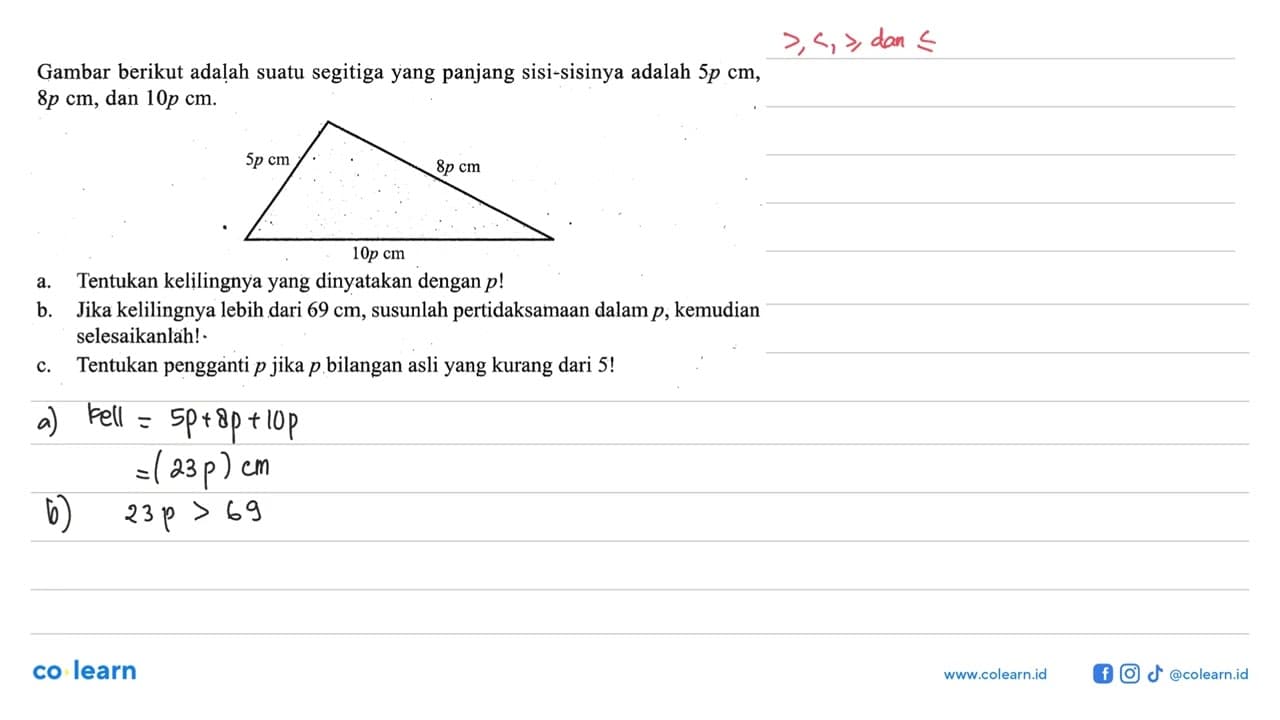 >, <, ≥ dan ≤
Gambar berikut adalah suatu segitiga yang panjang sisi-sisinya adalah 5p cm,
8p cm, dan 10p cm.
5p cm
8p cm
10p cm
a. Tentukan kelilingnya yang dinyatakan dengan p!
b. Jika kelilingnya lebih dari 69 cm, susunlah pertidaksamaan dalam p, kemudian
selesaikanlah!
c. Tentukan pengganti p jika p bilangan asli yang kurang dari 5!
a) kell = 5p + 8p + 10p
= (23p) cm
b) 23p > 69
co learn
www.colearn.id
@colearn.id